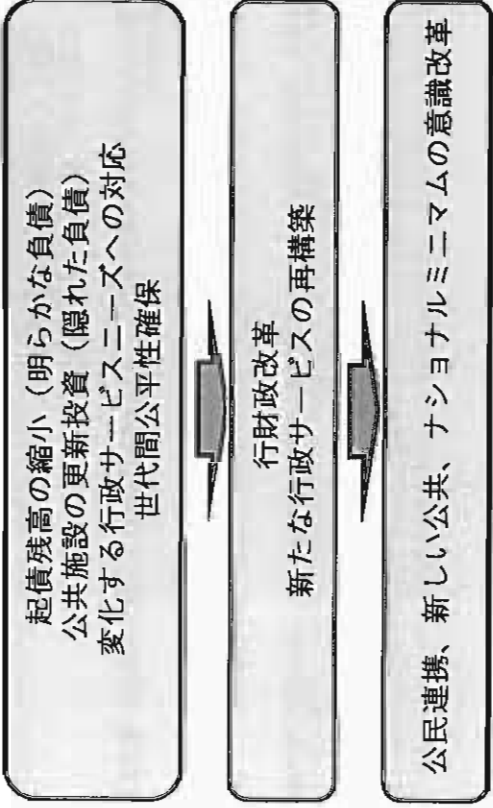 起債残高の縮小（明らかな負債）
公共施設の更新投資（隠れた負債）
変化する行政サービスニーズへの対応
世代間公平性確保
行財政改革
新たな行政サービスの再構築
公民連携、新しい公共、ナショナルミニマムの意識改革